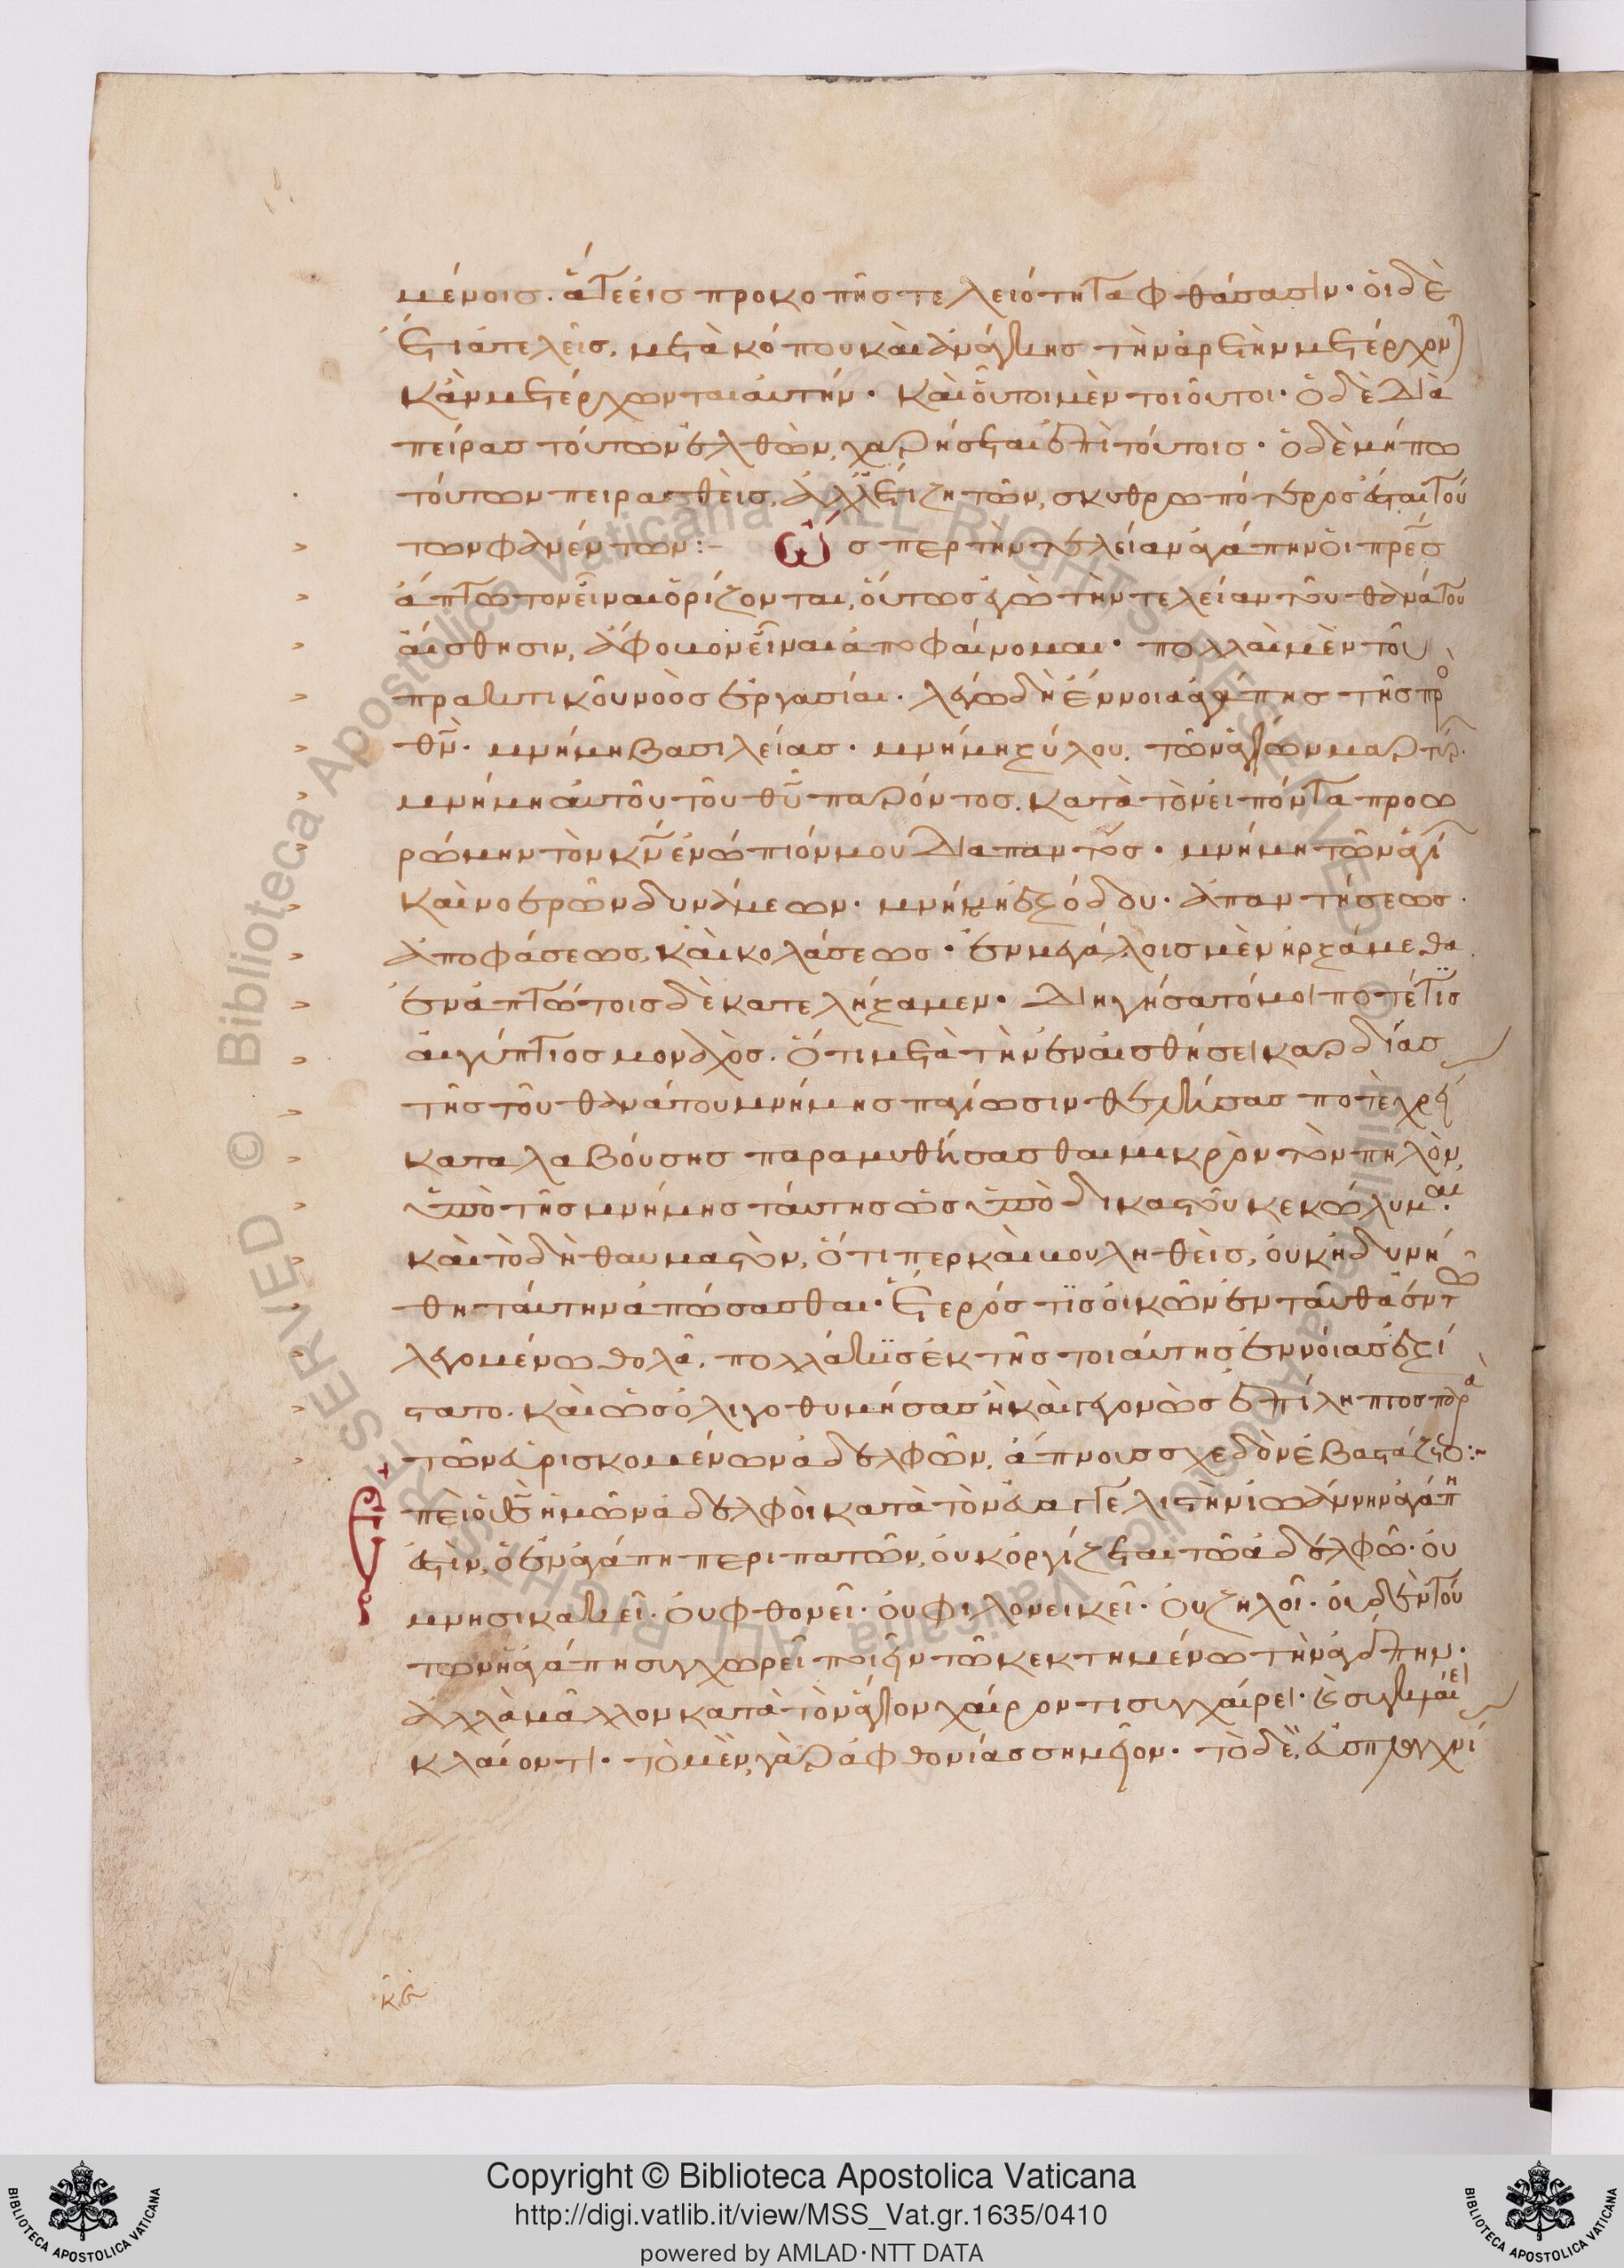 μένοις. ἅτε εἰς προκοπῆς τελειότητα φθάσασιν· οἱ δὲ
ἔτι ἀτελεῖς, μετὰ κόπου καὶ ἀνάγκης τὴν ἀρετὴν μετέρχον
κἂν μετέρχωνται αὐτήν· καὶ οὗτοι μὲν τοιοῦτοι· ὁ δὲ διὰ
πείρας τούτων ἐλθὼν, χαρήσεται ἐπὶ τούτοις· ὁ δὲ μήπω
τούτων πειρασθεὶς, ἀλλ' ἔτι ζητῶν, σκυθρωπότερος ἔσται τού
των φανέντων:-
Ὥσπερ τὴν τελείαν ἀγάπην οἱ πρ̅ε̅ς
ἄπτωτον εἶναι ὁρίζονται, οὕτως ἐγὼ τὴν τελείαν τοῦ θανάτου
αἴσθησιν, ἄφοβον εἶναι ἀποφαίνομαι· πολλαὶ μὲν τοῦ
πρακτικοῦ νοὸς ἐργασίαι· λέγω δὴ ἔννοια ἀγάπης τῆς πρὸ
θν̅· μνήμη βασιλείας· μνήμη ζήλου, τῶν ἁγίων μαρτύρ·
μνήμη αὐτοῦ τοῦ θυ̅ παρόντος, κατὰ τὸν εἰπόντα προω
ρώμην τὸν κν̅ ἐνώπιόν μου διαπαντὸς· μνήμη τῶν ἁγί
καὶ νοερῶν δυνάμεων· μνήμη ἐξόδου· ἀπαντήσεως·
ἀποφάσεως, καὶ κολάσεως· ἐν μεγάλοις μὲν ἠρξάμεθα
ἐν ἀπτώτοις δὲ κατελήξαμεν· διηγήσατό μοι ποτέ τις
αἰγύπτιος μοναχὸς. ὅτι μετὰ τὴν ἐν αἰσθήσει καρδίας
τῆς τοῦ θανάτου μνήμης παγίωσιν θελήσας ποτὲ χρεί
καταλαβούσης παραμυθήσασθαι μικρὸν τὸν πηλὸν,
ὑπὸ τῆς μνήμης ταύτης ὡς ὑπὸ δικαστοῦ κεκώλυμαι·
καὶ τὸ δὴ θαυμαστὸν, ὅτιπερ καὶ βουληθεὶς, οὐκ ἠδυνή
θη ταύτην ἀπώσασθαι· ἕτερός τις οἰκῶν ἐνταῦθα ἐν τῶ
λεγομένω θολᾶ, πολλάκις ἐκ τῆς τοιαύτης ἐννοίας ἐξί
στατο· καὶ ὡς ὀλιγοθυμήσας ἢ καὶ γεγονὼς ἐπίληπτος παρὰ
τῶν εὑρισκομένων ἀδελφῶν, ἄπνους σχεδὸν ἐβαστάζετο:~
Ἐπεὶ ὁ θς̅ ἡμῶν ἀδελφοὶ κατὰ τὸν εὐαγγελιστὴν ἰωάννην ἀγάπη
ἐστὶν, ὁ ἐν ἀγάπη περιπατῶν, οὐκ ὀργίζεται τῶ ἀδελφῶ· οὐ
μνησικακεῖ· οὐ φθονεῖ· οὐ φιλονεικεῖ· οὐ ζηλοῖ· οὐδὲν τού
των ἡ ἀγάπη συγχωρεῖ ποιεῖν τῶ κεκτημένω τὴν ἀγάπην·
ἀλλὰ μᾶλλον κατὰ τὸν ἅγιον χαίροντι συγχαίρει· καὶ συγκλαίει
κλαίοντι· τὸ μὲν, γὰρ ἀφθονίας σημεῖον· τὸ δὲ, εὐσπλαγχνί
κε
Copyright © Biblioteca Apostolica Vaticana
http://digi.vatlib.it/view/MSS_Vat.gr.1635/0410
powered by AMLAD·NTT DATA